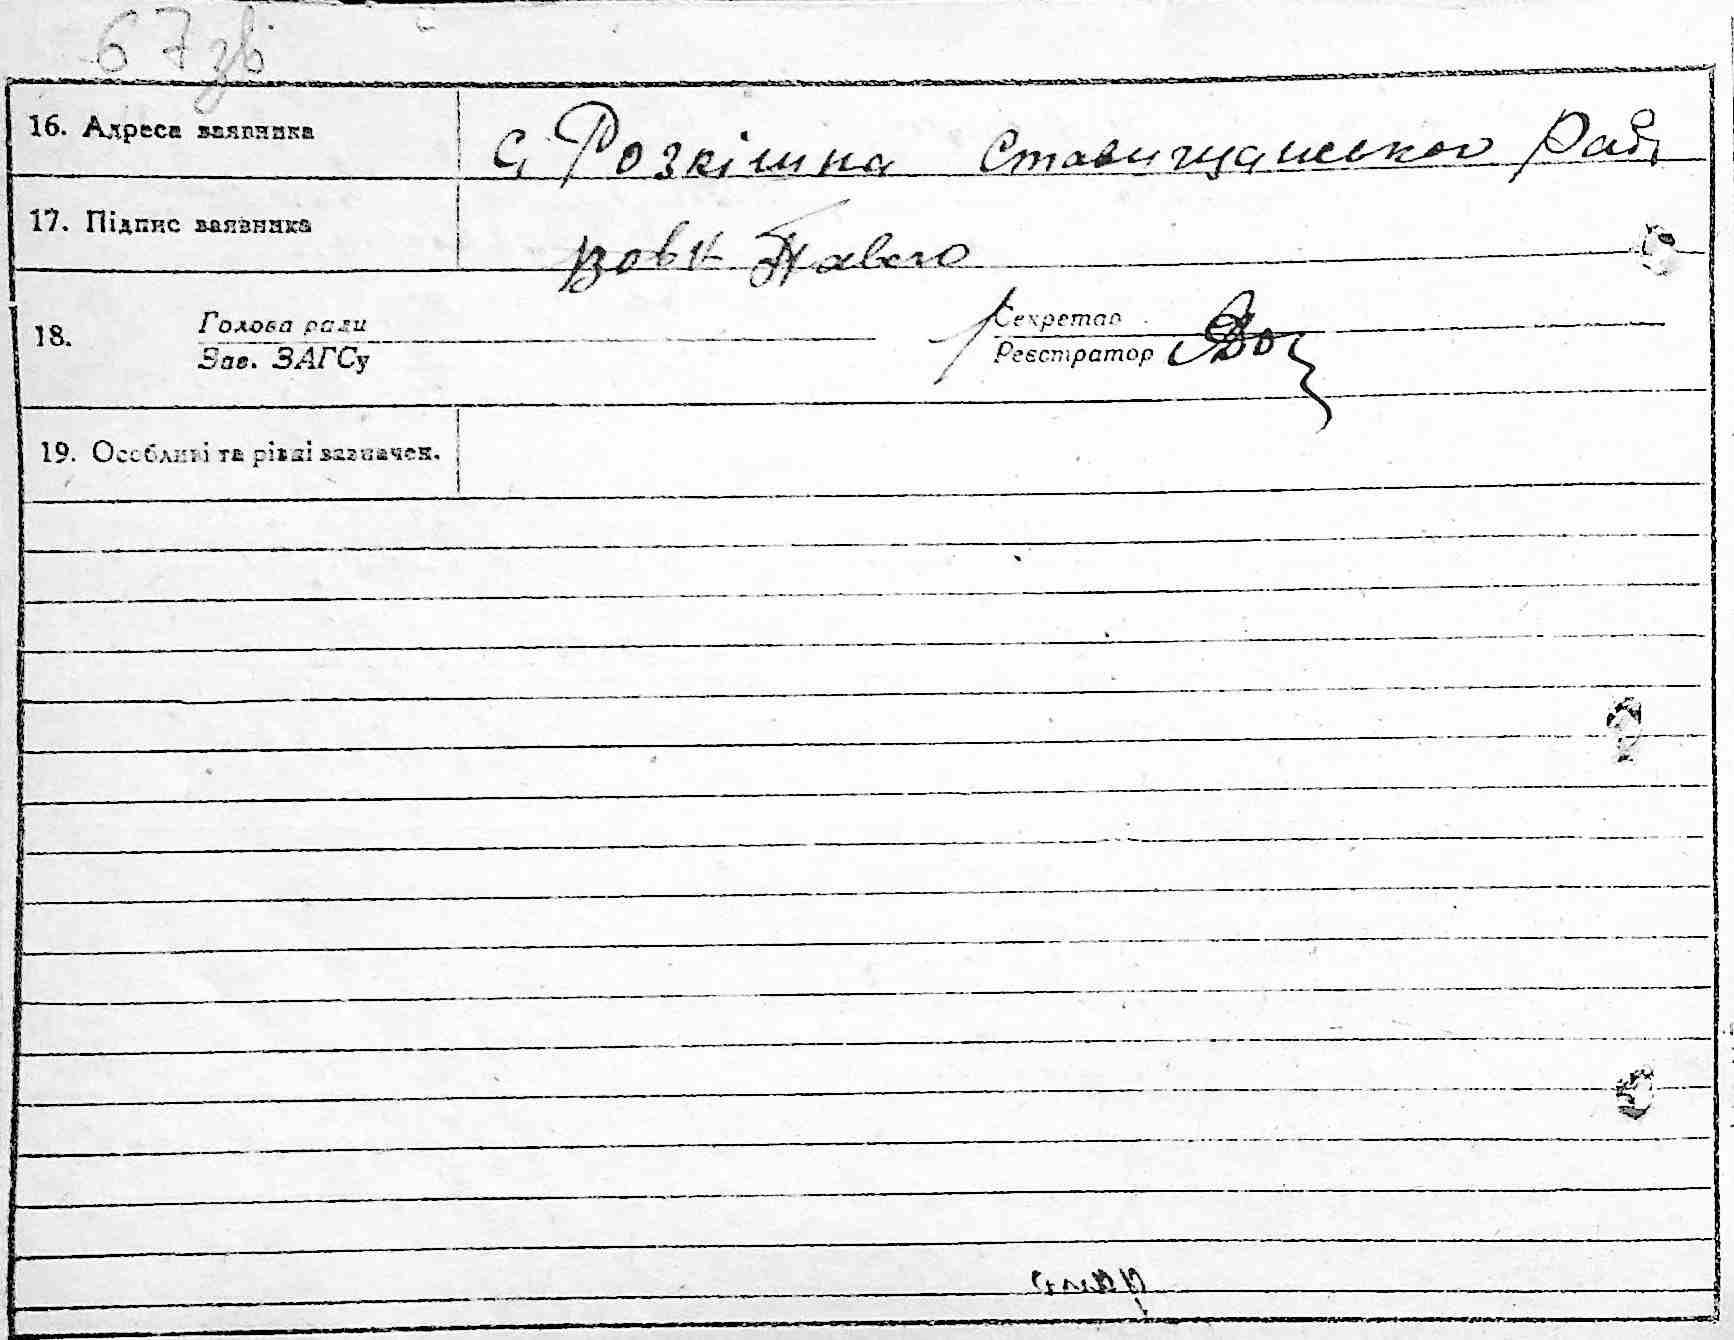 67зв
16. Адреса заявника
с. Розкішна Ставищанського Рай
17. Підпис заявника
Вовк Павло
18.
Голова ради
Зав. ЗАГСу
Секретар
Реєстратор
19. Особливі та різні зазначен.